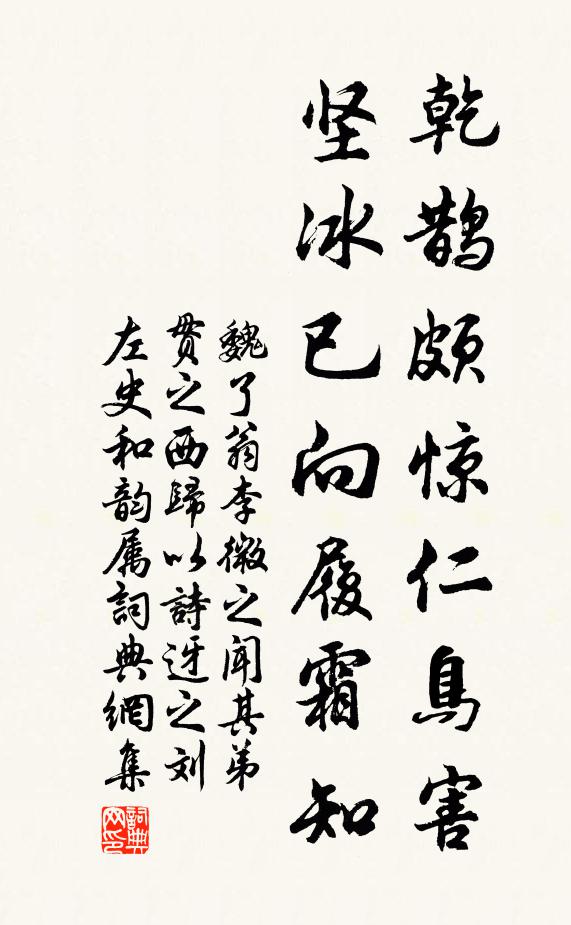 乾鹊颇惊仁鳥害
坚冰已向履霜知
魏了翁李微之闻其弟
贯之西歸以詩迓之刘
左史和韵属詞典網集
詞典網印